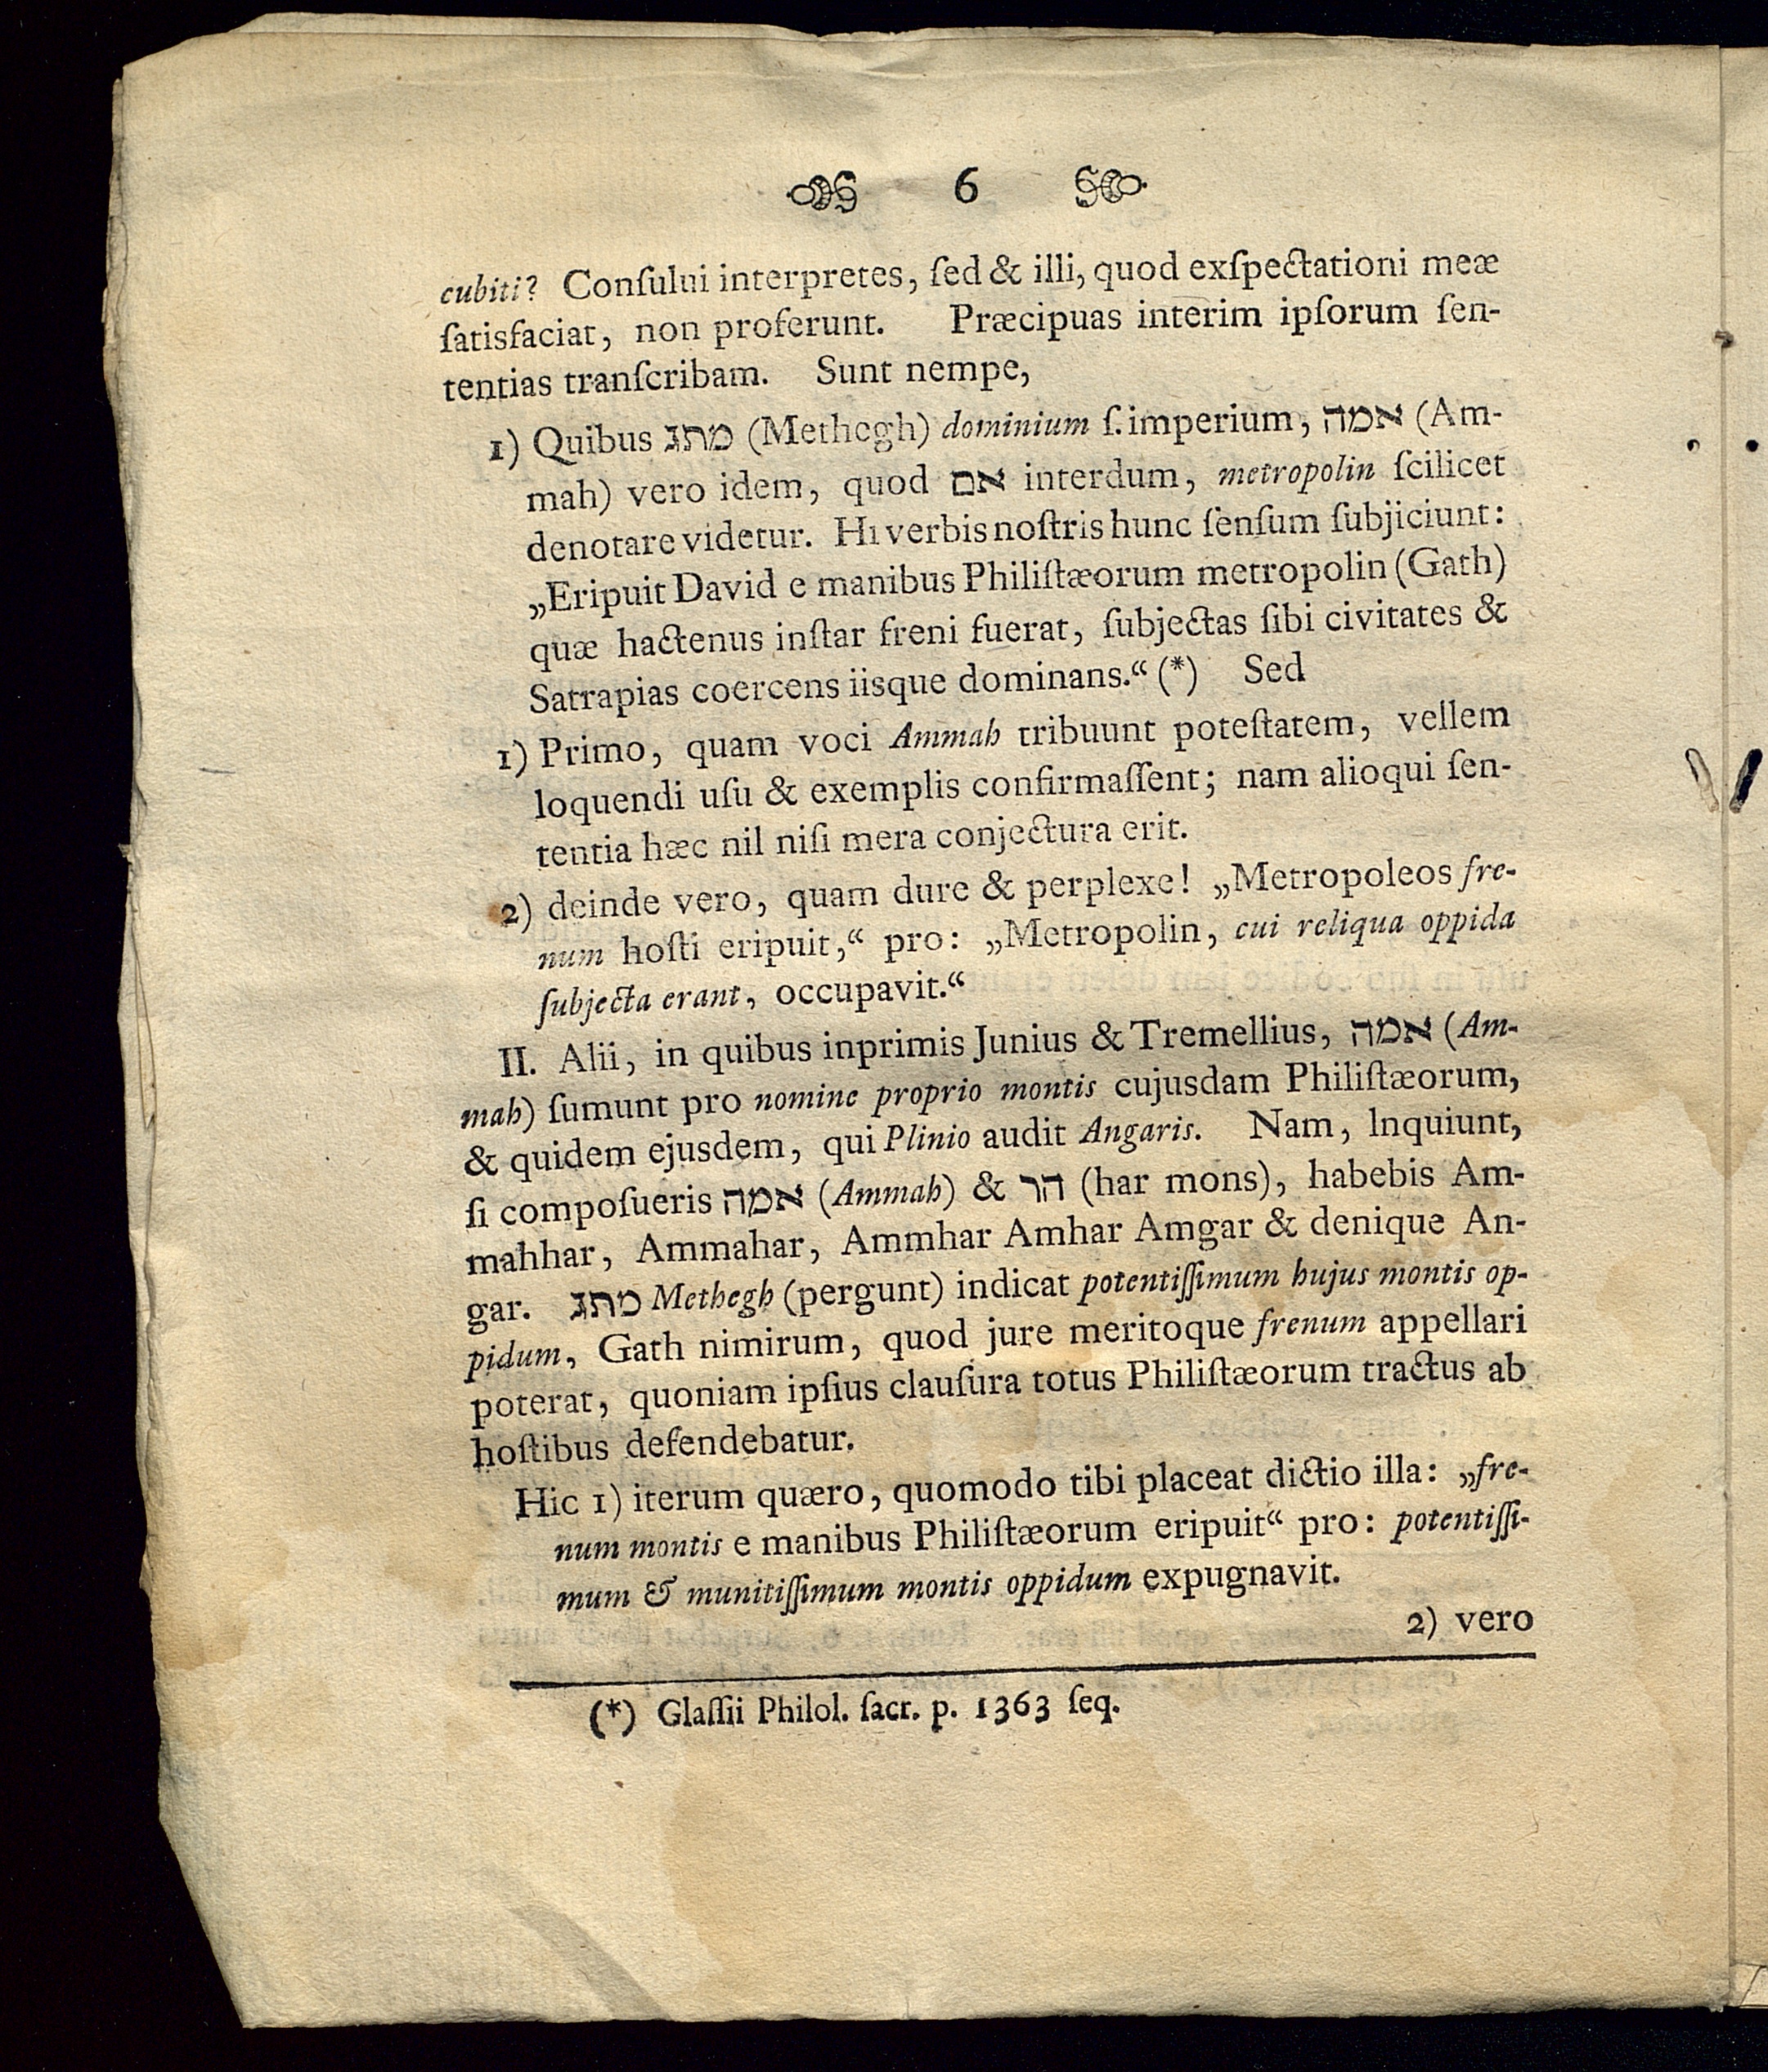 6
cubiti? Conſului interpretes, ſed & illi, quod exſpectationi meæ
ſatisfaciat, non proferunt. Præcipuas interim ipſorum ſen-
tentias tranſcribam. Sunt nempe,
1) Quibus מתג (Methegh) dominium ſ. imperium, אמה (Am-
mah) vero idem, quod אם interdum, metropolin ſcilicet
denotare videtur. Hi verbis noſtris hunc ſenſum ſubjiciunt:
„Eripuit David e manibus Philiſtæorum metropolin (Gath)
quæ hactenus inſtar freni fuerat, ſubjectas ſibi civitates &
Satrapias coercens iisque dominans.“ (*) Sed
1) Primo, quam voci Ammah tribuunt poteſtatem, vellem
loquendi uſu & exemplis confirmaſſent; nam alioqui ſen-
tentia hæc nil niſi mera conjectura erit.
2) deinde vero, quam dure & perplexe! „Metropoleos fre-
num hoſti eripuit,“ pro: „Metropolin, cui reliqua oppida
ſubjecta erant, occupavit.“
II. Alii, in quibus inprimis Junius & Tremellius, אמה (Am-
mah) ſumunt pro nomine proprio montis cujusdam Philiſtæorum,
& quidem ejusdem, qui Plinio audit Angaris. Nam, lnquiunt,
ſi compoſueris אמה (Ammah) & הר (har mons), habebis Am-
mahhar, Ammahar, Ammhar Amhar Amgar & denique An-
gar. מתג Methegh (pergunt) indicat potentiſſimum hujus montis op-
pidum, Gath nimirum, quod jure meritoque frenum appellari
poterat, quoniam ipſius clauſura totus Philiſtæorum tractus ab
hoſtibus defendebatur.
Hic 1) iterum quæro, quomodo tibi placeat dictio illa: „fre-
num montis e manibus Philiſtæorum eripuit“ pro: potentiſſi-
mum & munitiſſimum montis oppidum expugnavit.
2) vero
(*) Glaſſii Philol. ſacr. p. 1363 ſeq.